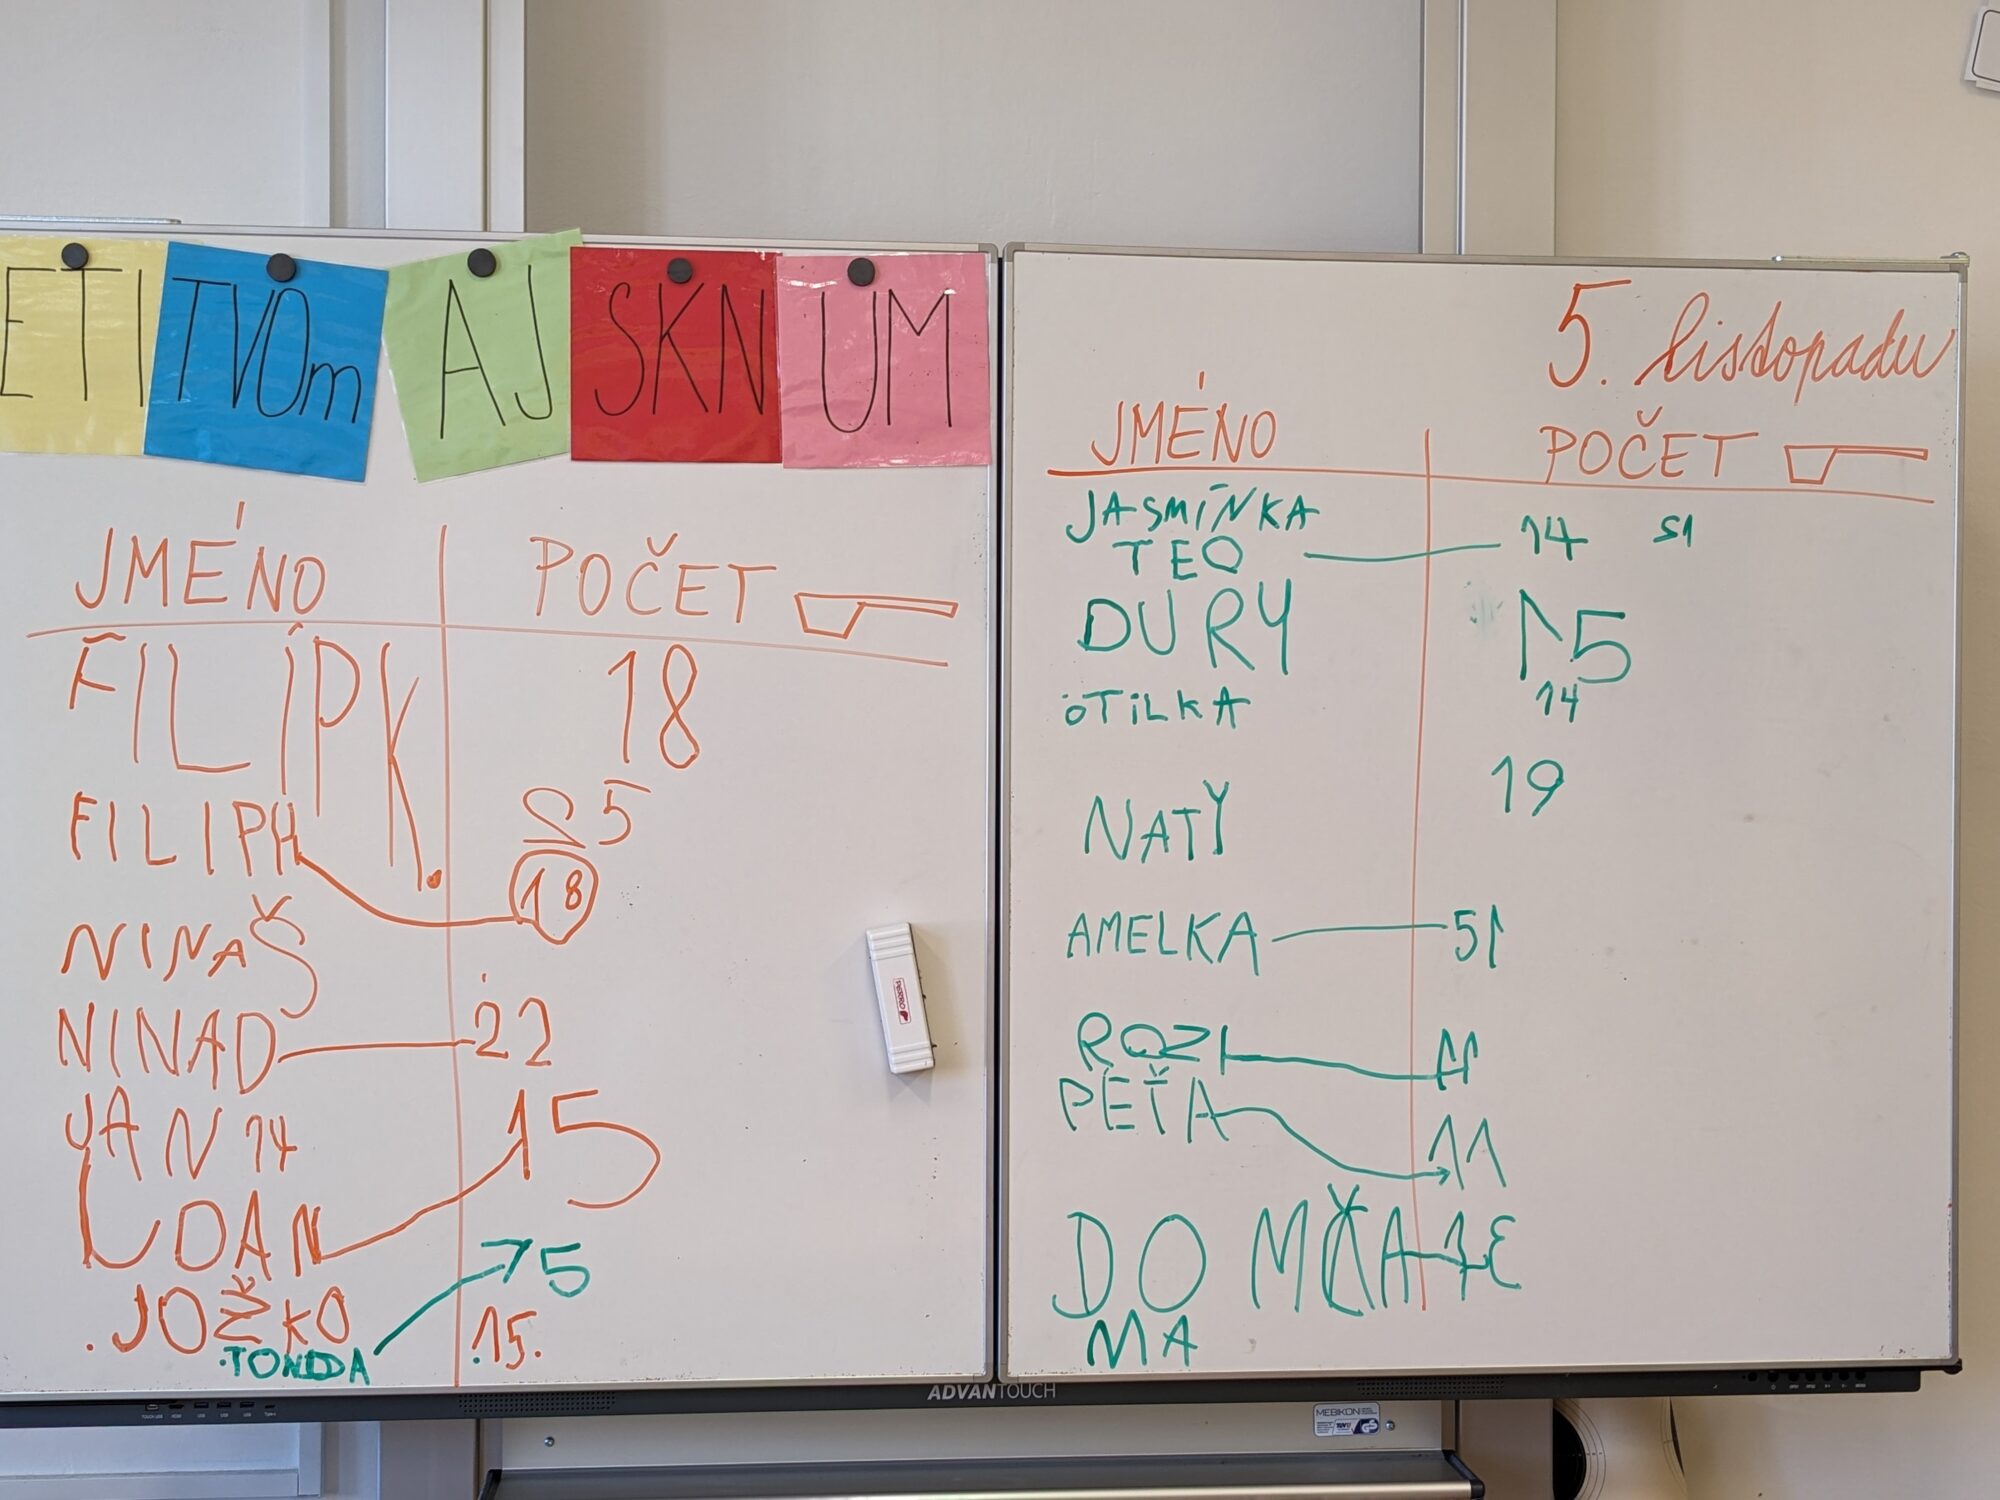 ETI TVOm AJ SKN UM
JMÉNO POČET
FILÍPK. 18
FILIPH 25
18
NINAŠ
NINAD 22
JAN 14
LOAN 15
JOŽKO 15.
TONDDA 75
5. listopadu
JMÉNO POČET
JASMÍNKA 51
TEO 14
DURY 15
OTILKA 14
NATÝ 19
AMELKA 51
ROZI 11
PEŤA 11
DOMČA
MA
ADVANTOUCH
MEBIKON